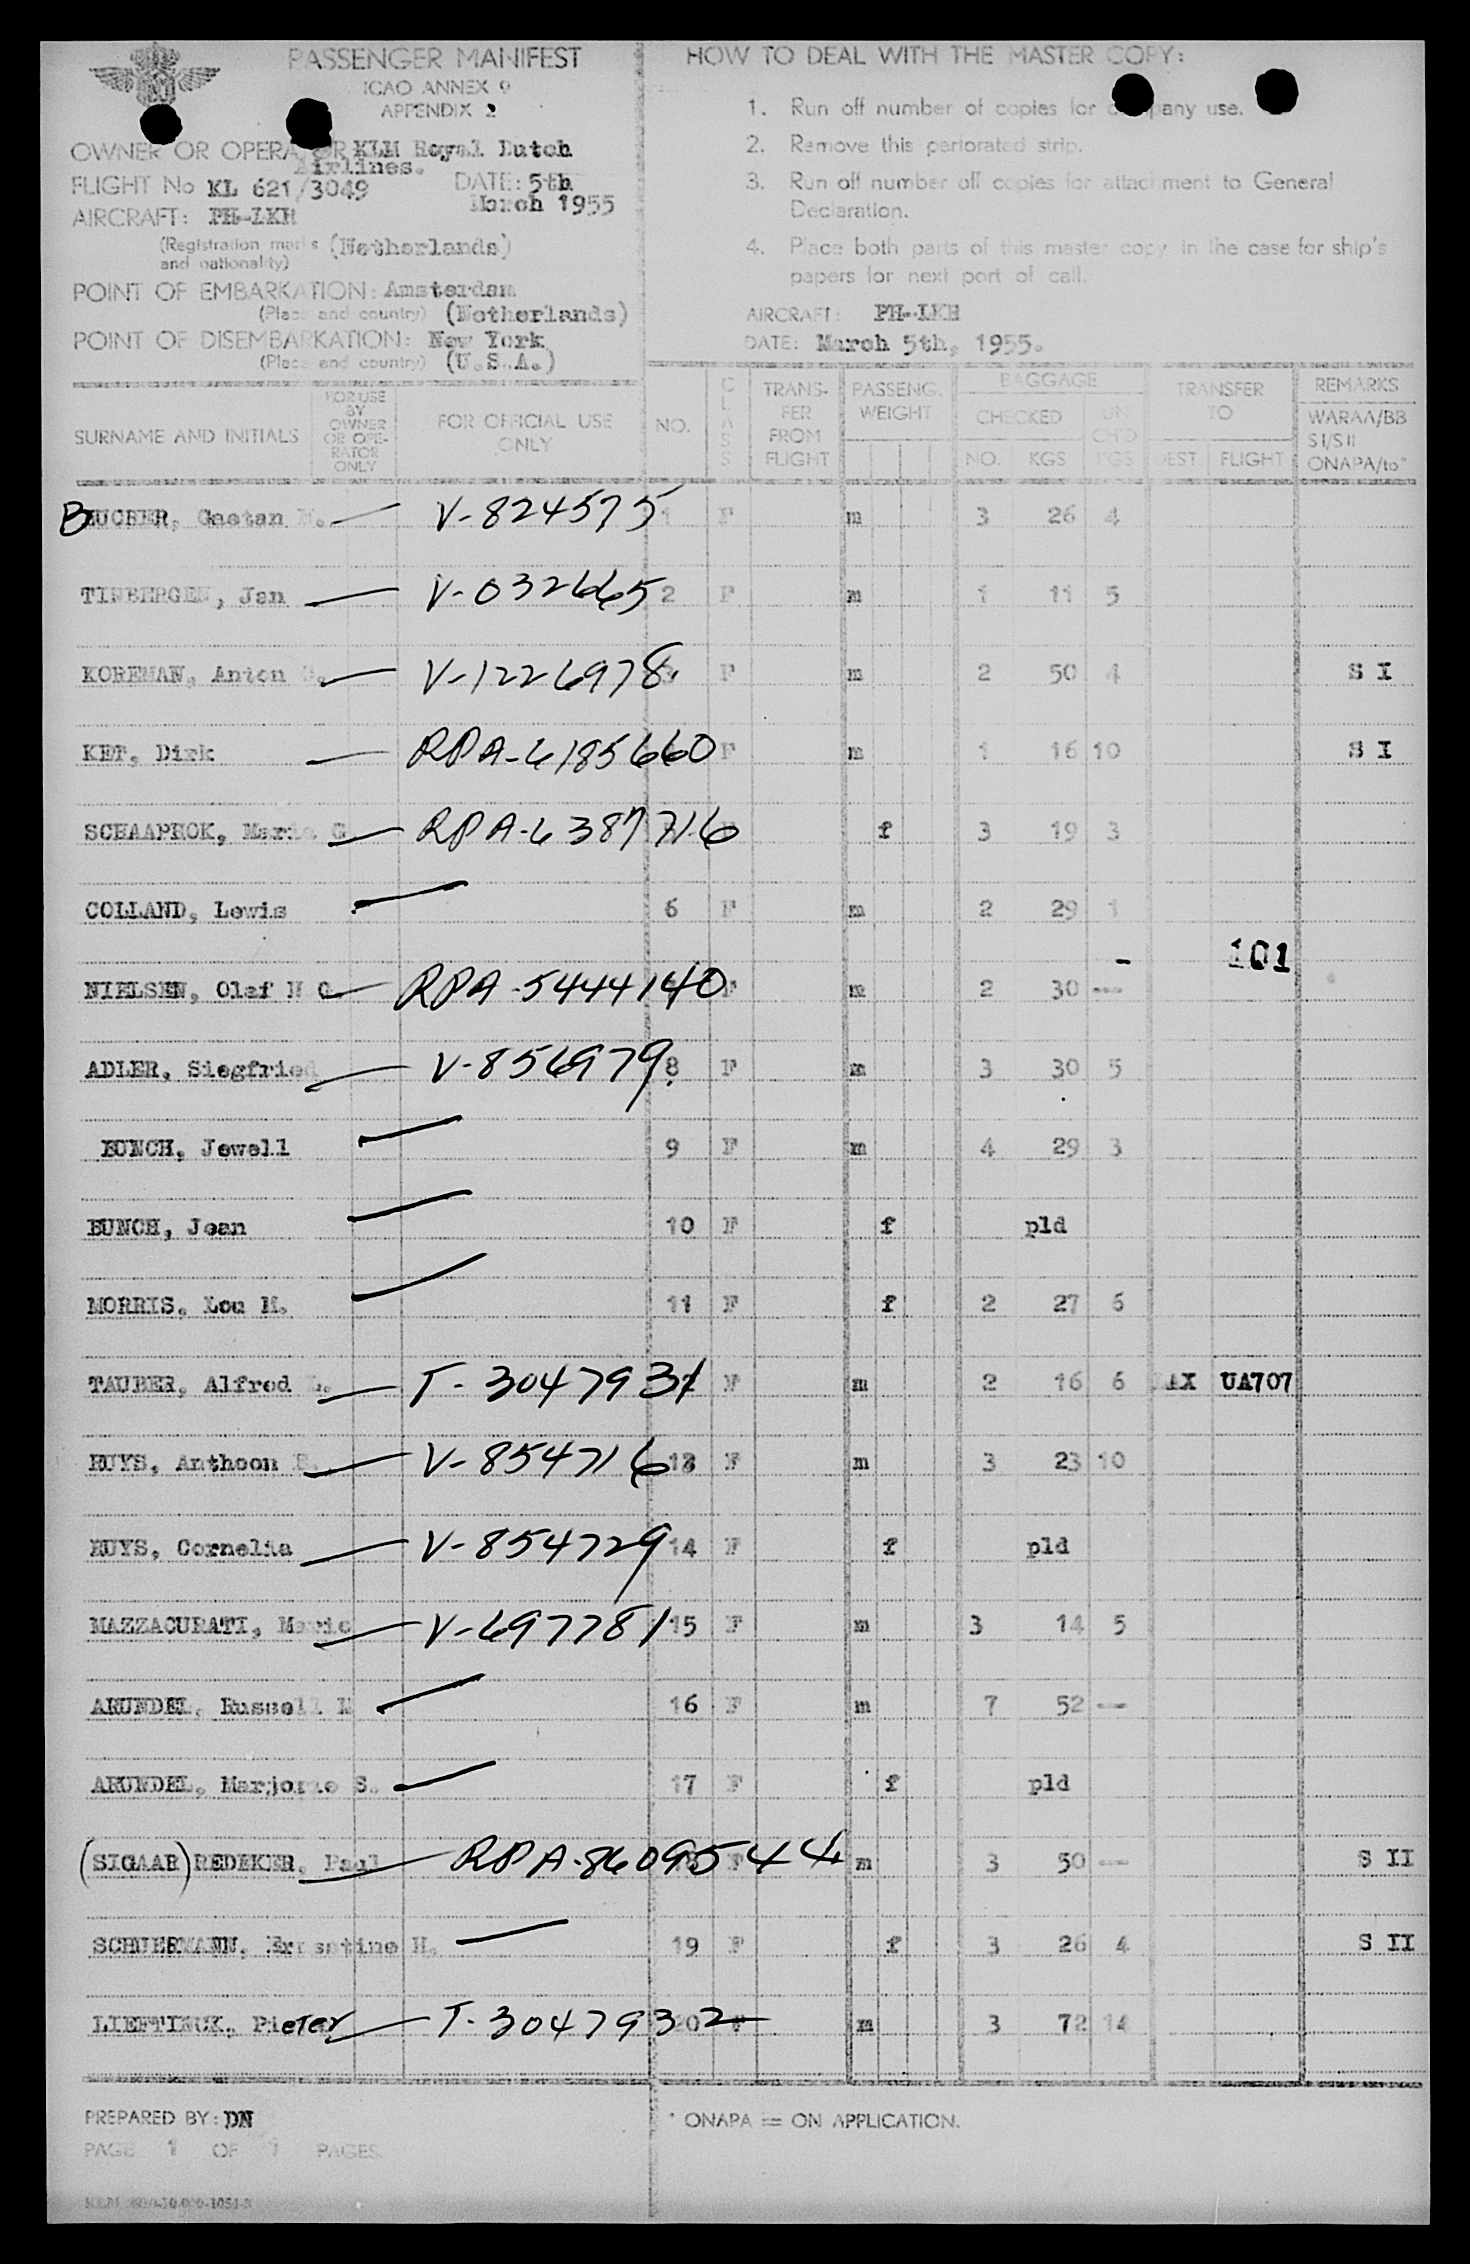 PASSENGER MANIFEST
ICAO ANNEX 9
APPENDIX 2
OWNER OR OPERATOR KLM Royal Dutch
Airlines.
FLIGHT No KL 621/3049 DATE: 5th
March 1955
AIRCRAFT: PH-LKH
(Registration marks (Netherlands)
and nationality)
POINT OF EMBARKATION: Amsterdam
(Place and country) (Netherlands)
POINT OF DISEMBARKATION: New York
(Place and country) (U.S.A.)
HOW TO DEAL WITH THE MASTER COPY:
1. Run off number of copies for company use.
2. Remove this perforated strip.
3. Run off number off copies for attachment to General
Declaration.
4. Place both parts of this master copy in the case for ship's
papers for next port of call.
AIRCRAFT: PH-LKH
DATE: March 5th, 1955.
SURNAME AND INITIALS FOR USE BY OWNER OR OPE-RATOR ONLY FOR OFFICIAL USE ONLY NO. CLASS TRANS-FER FROM FLIGHT PASSENG. WEIGHT BAGGAGE CHECKED NO. KGS UN CH'D KGS TRANSFER TO DEST FLIGHT REMARKS WARAA/BB S I/S II ONAPA/to*
B Gaetan — V-824575 1 F m 3 26 4
TINBERGEN, Jan — V-032665 2 F m 1 11 5
KOREMAN, Anton — V-1226978 F m 2 50 4 S I
KET, Dirk — RPA-6185660 F m 1 16 10 S I
SCHAAPHOK, Maria G — RPA-6387716 f 3 19 3
COLLAND, Lewis — 6 F m 2 29 1
101
NIELSEN, Olaf N C — RPA-5444140 F m 2 30 ---
ADLER, Siegfried — V-856979 8 F m 3 30 5
BUNCH, Jewell — 9 F m 4 29 3
BUNCH, Jean — 10 F f pld
MORRIS, Lou M. — 11 F f 2 27 6
TAUBER, Alfred — T-3047931 F m 2 16 6 UA707
RUYS, Anthoon — V-854716 13 F m 3 23 10
RUYS, Cornelia — V-854729 14 F f pld
MAZZACURATI, Mario — V-697781 15 F m 3 14 5
ARUNDEL, Russell M — 16 F m 7 52 ---
ARUNDEL, Marjorie S. — 17 F f pld
(SIGAAR) REDEKER, Paul — RPA-8609544 m 3 50 --- S II
SCHUERMANN, Ernestine H. — 19 F f 3 26 4 S II
LIEFTINCK, Pieter — T-3047932 20 F m 3 72 14
PREPARED BY: DN
PAGE 1 OF 1 PAGES
* ONAPA = ON APPLICATION.